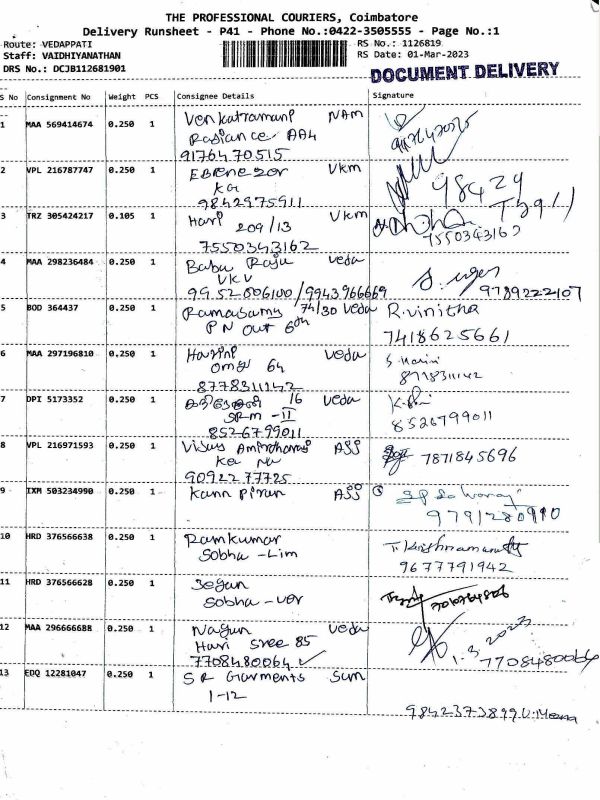 THE PROFESSIONAL COURIERS, Coimbatore
Delivery Runsheet - P41 - Phone No.:0422-3505555 - Page No.:1
Route: VEDAPPATI
RS No.: 1126819
Staff: VAIDHIYANATHAN
RS Date: 01-Mar-2023
DRS No.: DCJB112681901
DOCUMENT DELIVERY
S No Consignment No Weight PCS Consignee Details Signature
1 MAA 569414674 0.250 1 Venkatramanl NAm
Rasiance AA4
9176470515 9176470515
2 VPL 216787747 0.250 1 EBenezer Vkm
Ka
9842975911 98429 75911
3 TRZ 305424217 0.105 1 Hari 209/13 Vkm
7550343162 7550343162
4 MAA 298236484 0.250 1 Babu Raju Veda
VKV
9952806100/9943966669 9789222107
5 BOD 364437 0.250 1 Ramasamy 74/30 Veda R.Vinitha
PN Out 6th 7418625661
6 MAA 297196810 0.250 1 Harini Veda S. Harini
Omsv 64
8778311142 8778311142
7 DPI 5173352 0.250 1 16 Veda
SRM -II
8526799011 8526799011
8 VPL 216971593 0.250 1 Vijay Amirdharaj ASS
Ka Na 7871845696
90922 77725
9 IXM 503234990 0.250 1 Kann Piran ASS
9791280910
10 HRD 376566638 0.250 1 Ramkumar T. Krishnamurthy
Sobha -Lim 9677791942
11 HRD 376566628 0.250 1 Jegan
Sobha -Ver
12 MAA 296666688 0.250 1 Nagun Veda
Hari Sree 85 1.3.2023
7708480064 ✓ 7708480064
13 EDQ 12281047 0.250 1 S R Garments Sum
1-12
9842373899 U.Meena